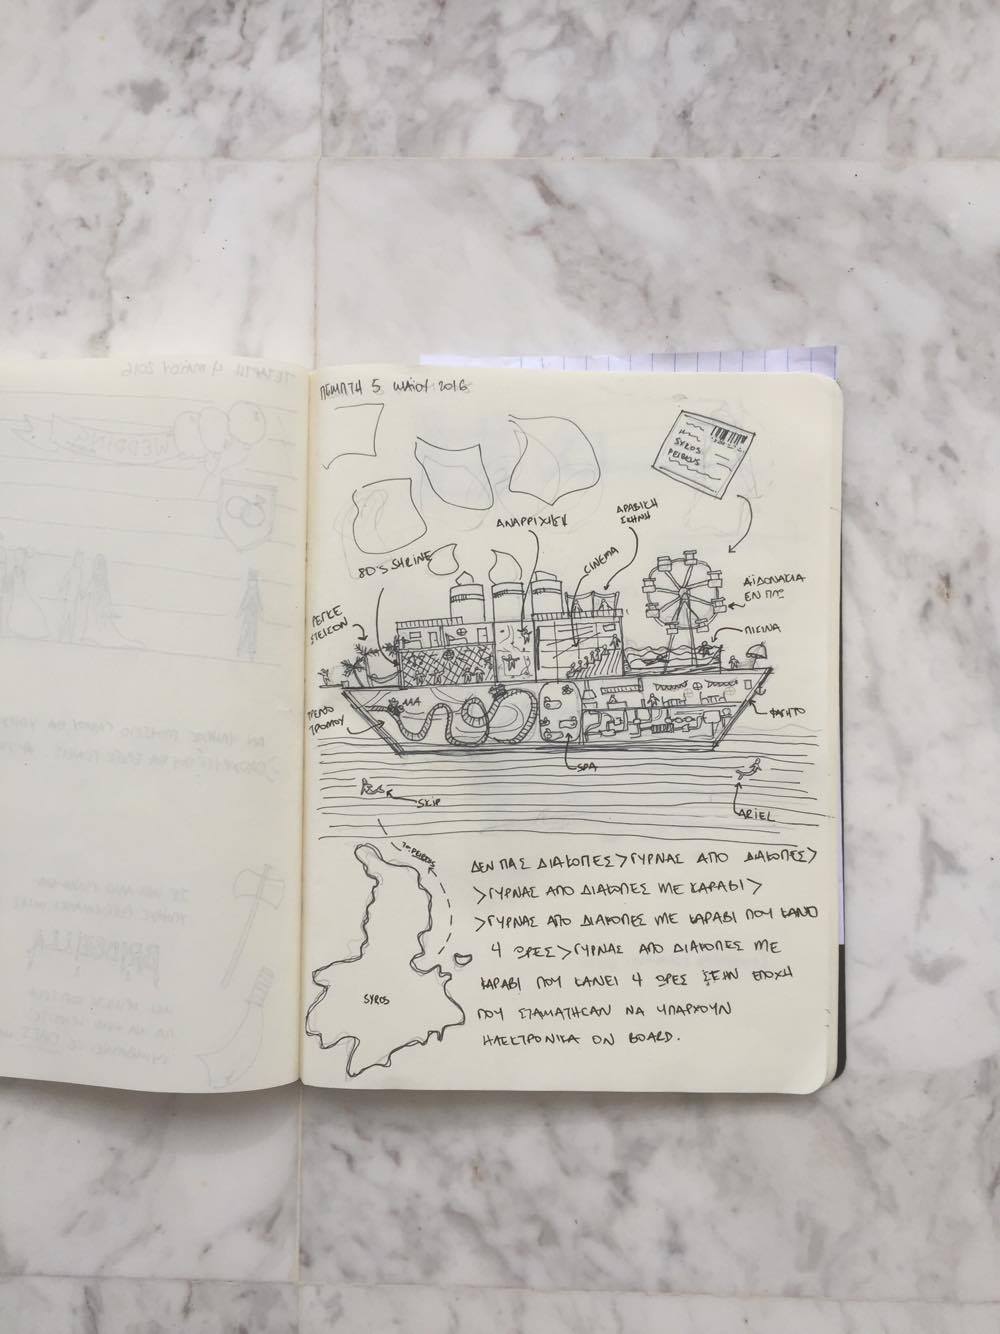 ΠΕΜΠΤΗ 5 ΜΑΪΟΥ 2016
SYROS
PEIRAEUS
ΑΝΑΡΡΙΧΗΣΗ
ΑΡΑΒΙΚΗ
ΣΚΗΝΗ
80'S SHRINE
CINEMA
ΑΪΔΟΝΑΚΙΑ
ΕΝ ΠΛΩ
ΡΕΓΚΕ
ΣΤΕΙΣΟΝ
ΠΙΣΙΝΑ
ΤΡΕΝΟ
ΤΡΟΜΟΥ
AAA
ΦΑΓΗΤΟ
SPA
SKIP
ARIEL
SYROS
ΔΕΝ ΠΑΣ ΔΙΑΚΟΠΕΣ>ΓΥΡΝΑΣ ΑΠΟ ΔΙΑΚΟΠΕΣ>
>ΓΥΡΝΑΣ ΑΠΟ ΔΙΑΚΟΠΕΣ ΜΕ ΚΑΡΑΒΙ>
>ΓΥΡΝΑΣ ΑΠΟ ΔΙΑΚΟΠΕΣ ΜΕ ΚΑΡΑΒΙ ΠΟΥ ΚΑΝΕΙ
4 ΩΡΕΣ>ΓΥΡΝΑΣ ΑΠΟ ΔΙΑΚΟΠΕΣ ΜΕ
ΚΑΡΑΒΙ ΠΟΥ ΚΑΝΕΙ 4 ΩΡΕΣ ΣΤΗΝ ΕΠΟΧΗ
ΠΟΥ ΣΤΑΜΑΤΗΣΑΝ ΝΑ ΥΠΑΡΧΟΥΝ
ΗΛΕΚΤΡΟΝΙΚΑ ON BOARD.